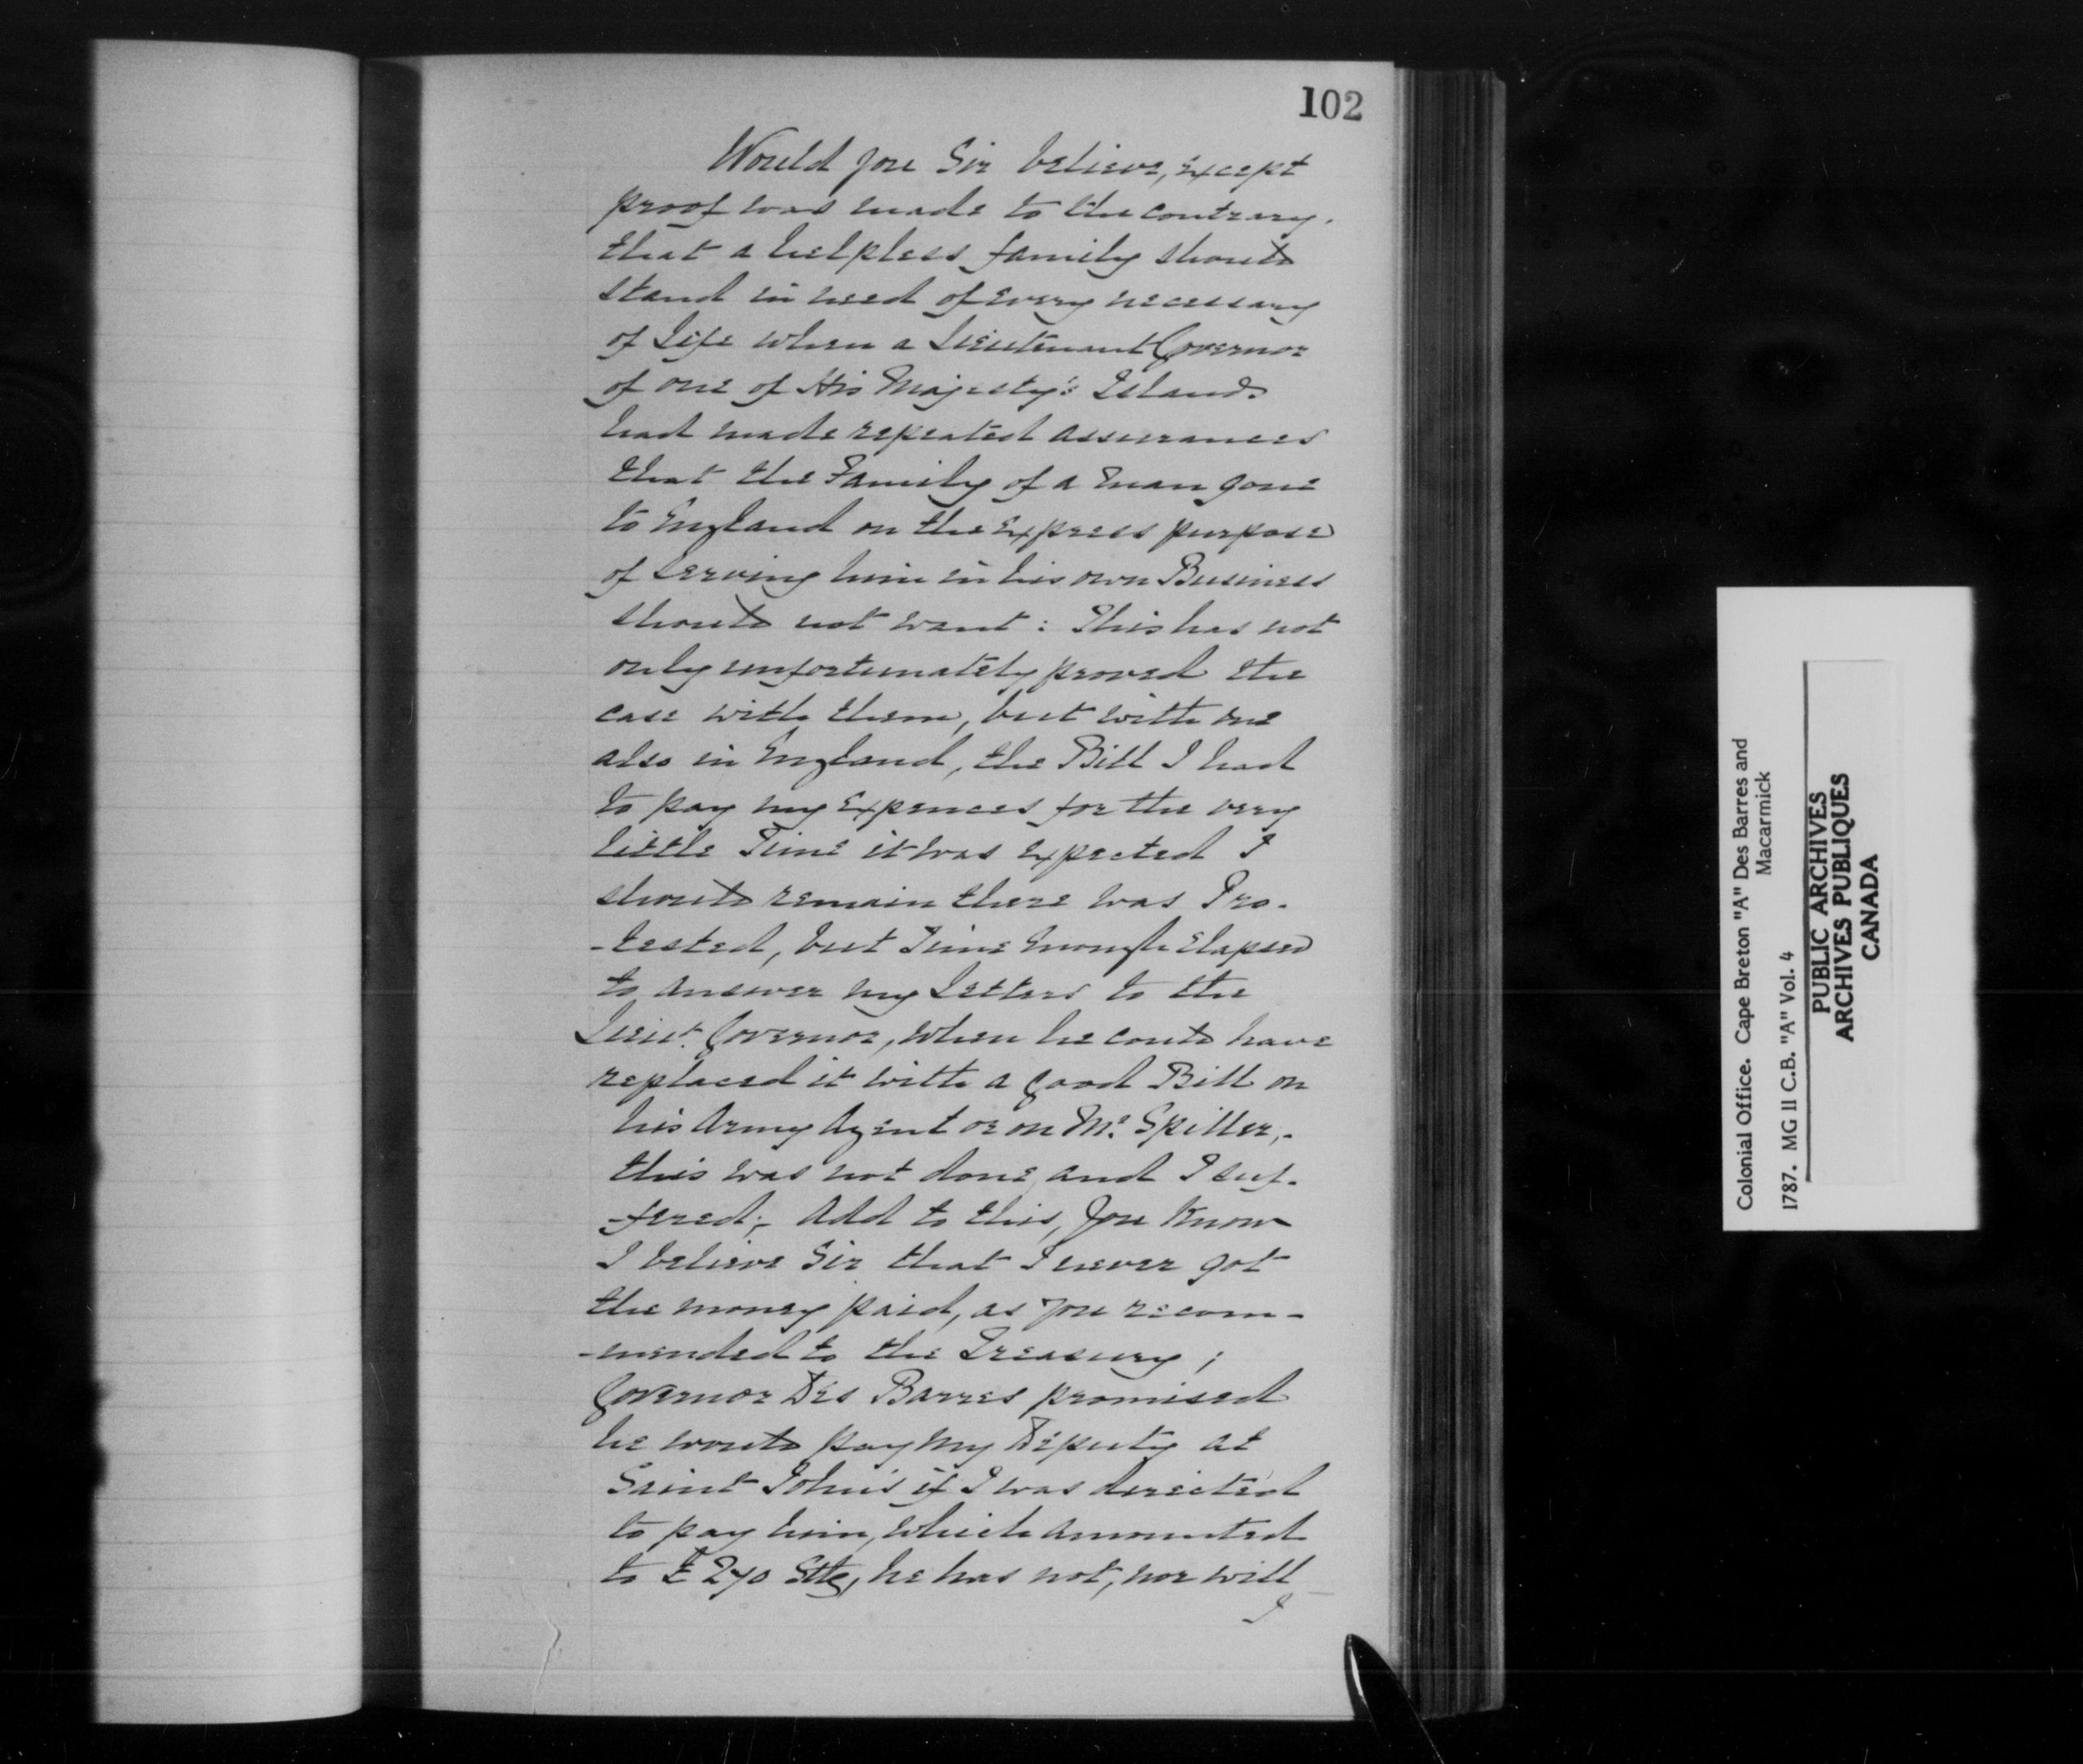 102
Would you Sir believe, except
proof was made to the contrary.
that a helpless family should
stand in need of every necessary
of Life when a Lieutenant Governor
of one of His Majesty's Islands
had made repeated assurances
that the Family of a Man gone
to England on the Express purpose
of serving him in his own Business
should not want : This has not
only unfortunately proved the
case with them, but with me
also in England, the Bill I had
to pay my Expences for the very
little Time it was expected I
should remain there was Pro-
-tested, but Time Enough Elapsed
to answer my Letters to the
Lieut. Governor, when he could have
replaced it with a good Bill on
his Army Agent or on Mr. Spiller,-
this was not done, and I suf-
-fered;- Add to this, you Know
I believe Sir that I never got
the money paid, as you recom-
-mended to the Treasury ;
Governor Des Barres promised
he would pay my Deputy at
Saint John's if I was directed
to pay him, which amounted
to £270 Stlg, he has not, nor will
I
Colonial Office. Cape Breton "A" Des Barres and
Macarmick
1787. MG 11 C.B. "A" Vol. 4
PUBLIC ARCHIVES
ARCHIVES PUBLIQUES
CANADA